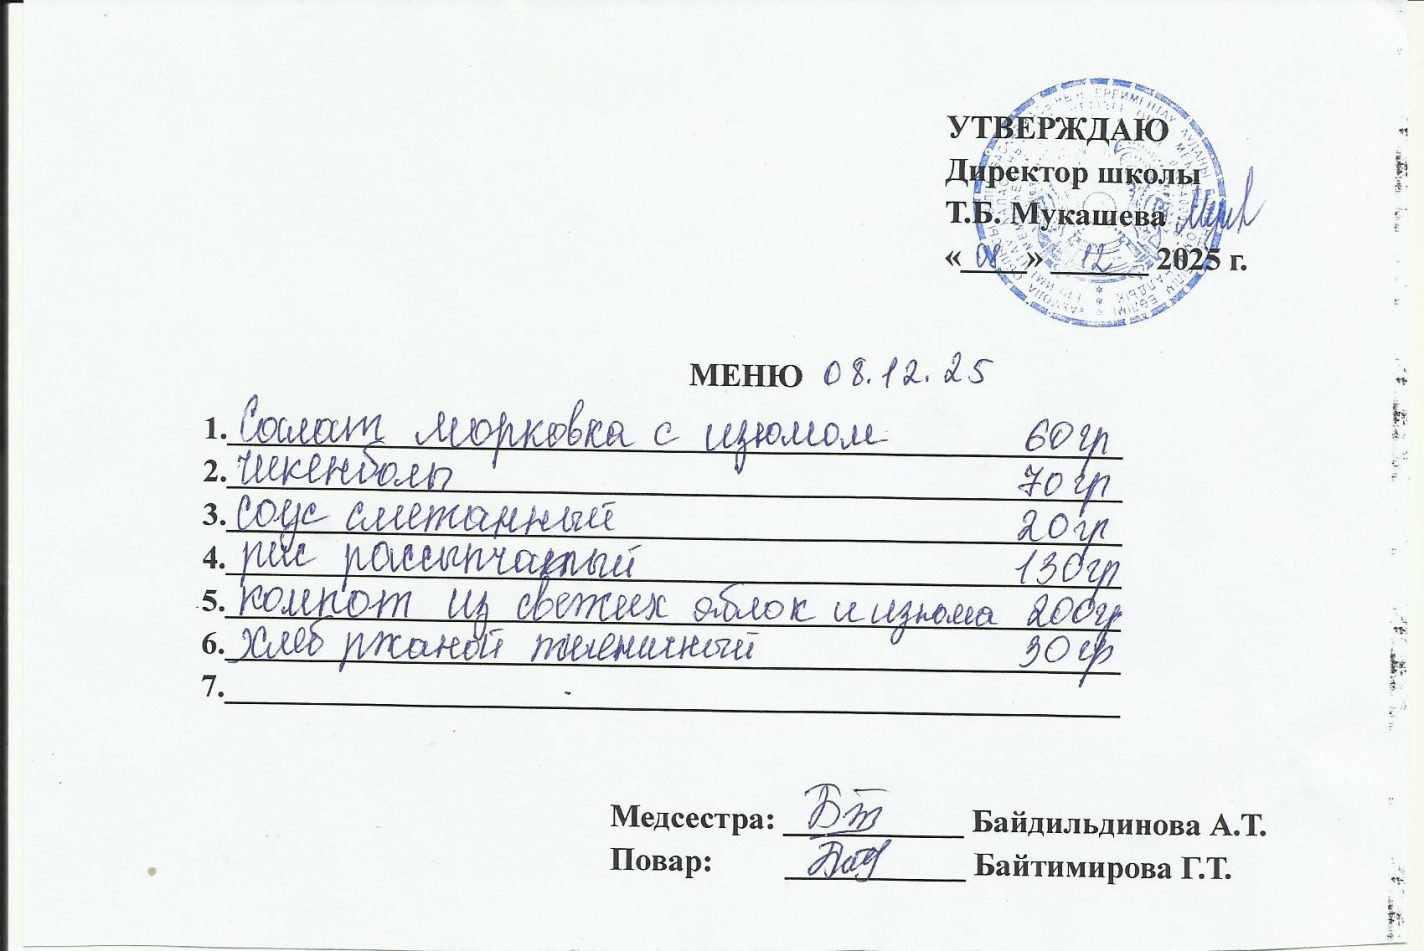 УТВЕРЖДАЮ
Директор школы
Т.Б. Мукашева
«08» 12 2025 г.
МЕНЮ 08.12.25
1. Салат морковка с изюмом 60гр
2. чикенболы 70гр
3. соус сметанный 20гр
4. рис рассыпчатый 130гр
5. компот из свежих яблок и изюма 200гр
6. хлеб ржаной пшеничный 30гр
7.
Медсестра: Байдильдинова А.Т.
Повар: Байтимирова Г.Т.